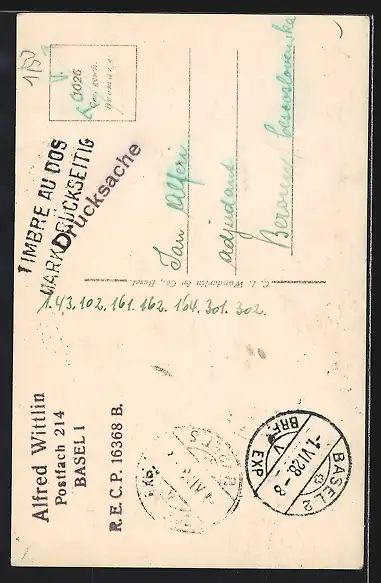 1/50
0026
Ges. gesch.
Bromure
TIMBRE AU DOS
MARKE RÜCKSEITIG
Drucksache
Jan Alferi
adjudant
Beroun, Československa
C. L. Wunderlin & Co., Basel.
1.43.102.161.162.164.301.302.
Alfred Wittlin
Postfach 214
BASEL 1
R.E.C.P. 16368 B.
BASEL 2
-1.VI.28-8
BRF. V EXP
EXP.